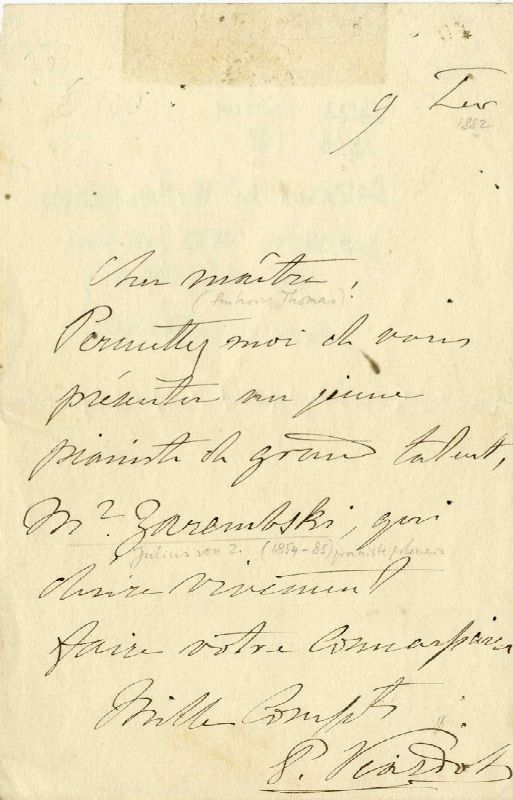 9 Fev
1882
Cher maître,
(Ambroise Thomas)
Permettez moi de vous
présenter un jeune
pianiste de grand talent,
Mr. Zarembski, qui
Julius von Z. (1854-85) pianiste polonais
désire vivement
faire votre connaissance
Mille Compts
P. Viardot